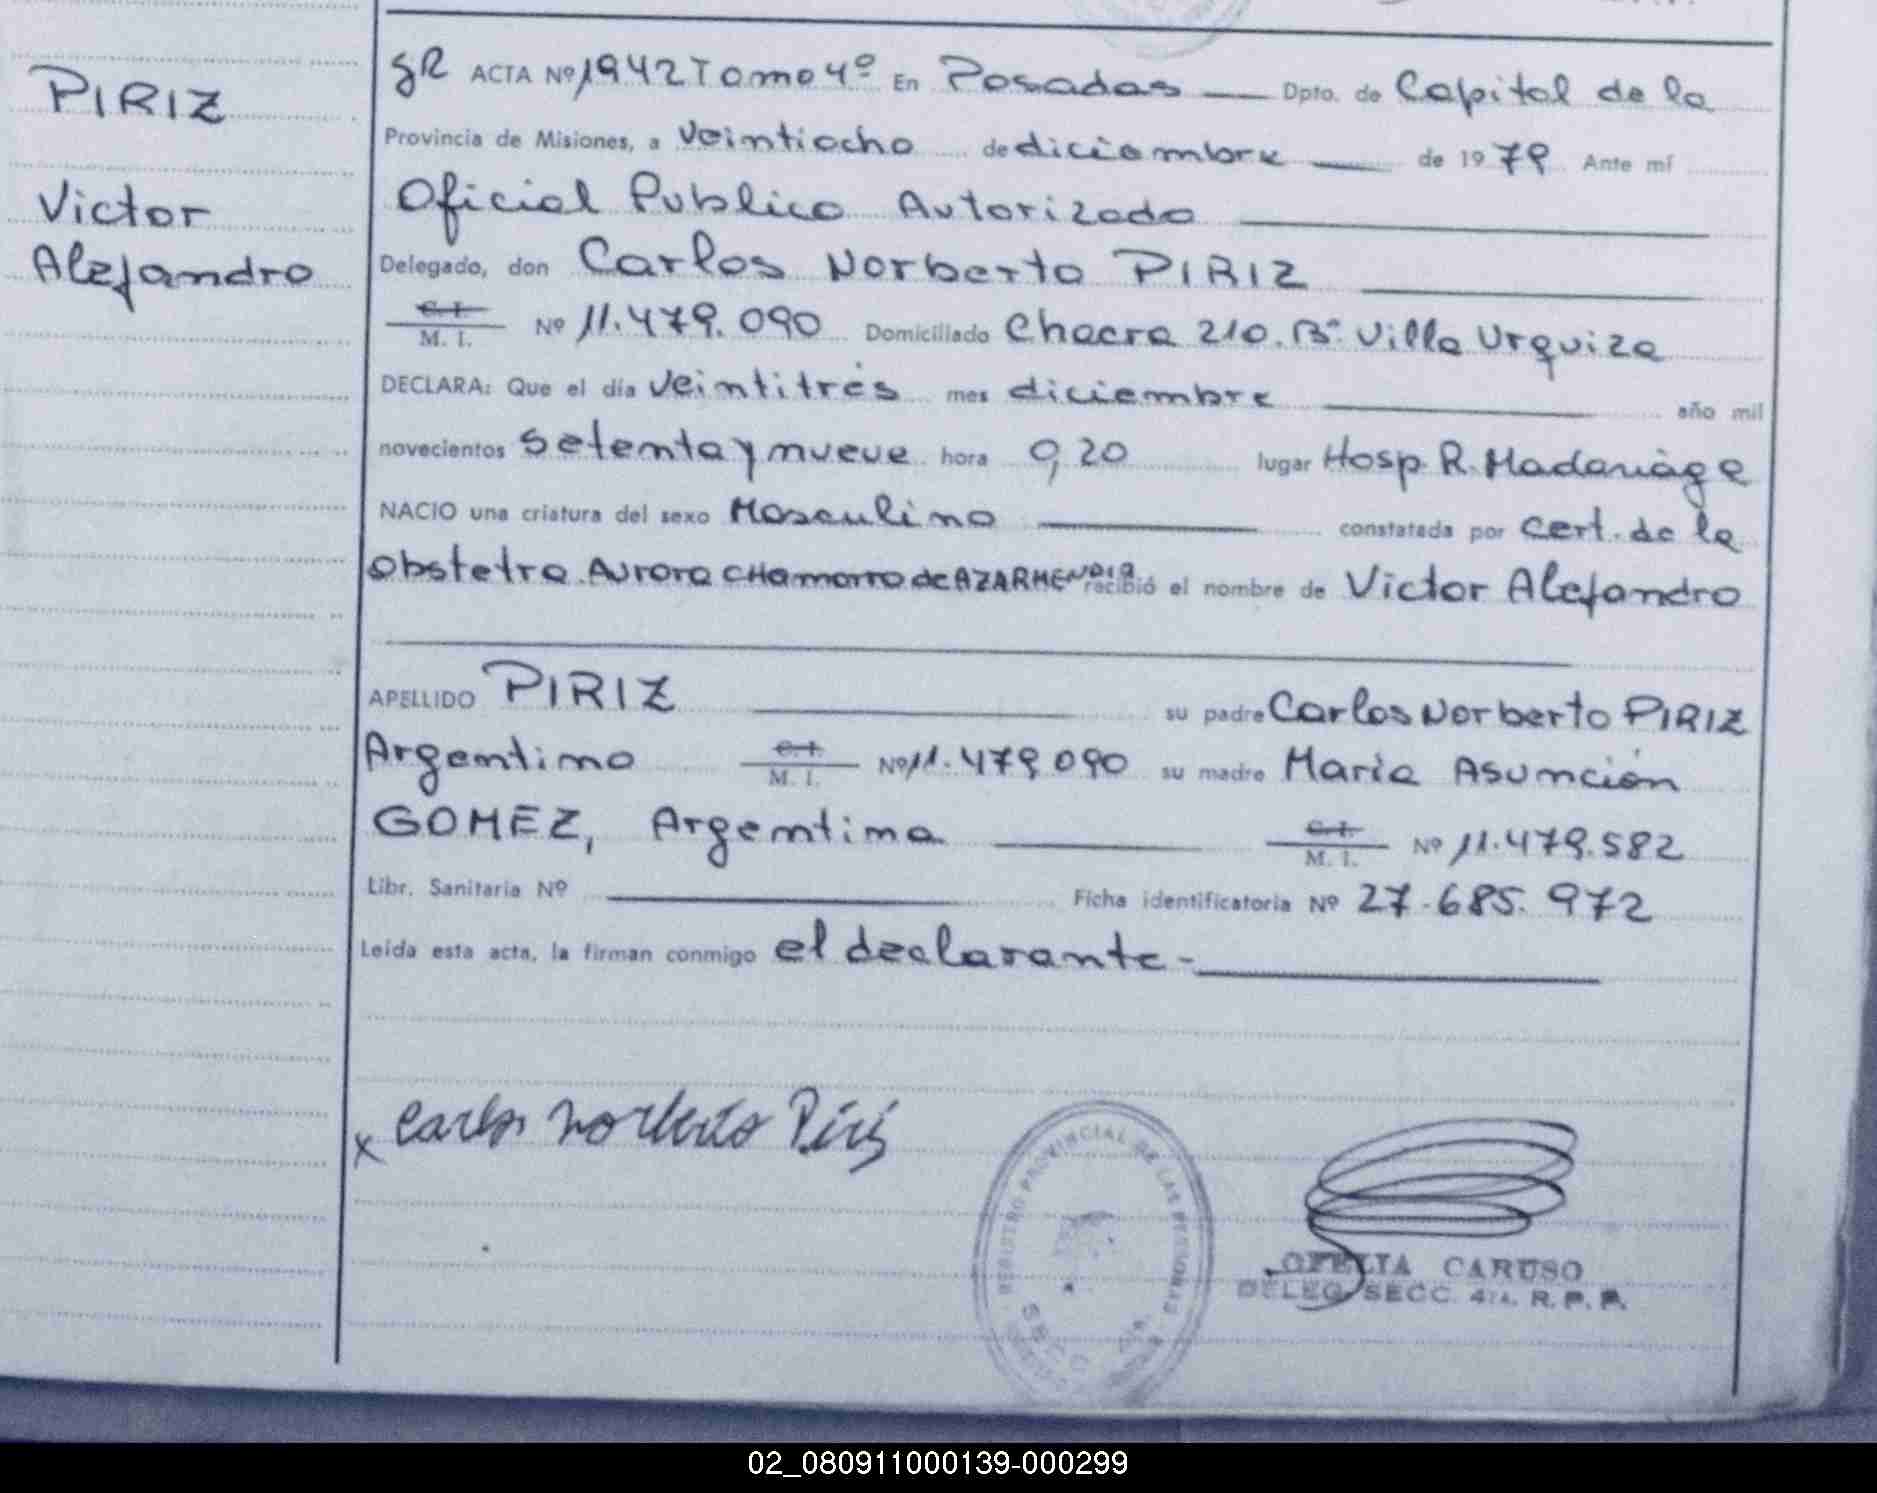 PIRIZ
Victor
Alejandro
gR ACTA Nº 1942 Tomo 4º En Posadas Dpto. de Capital de la
Provincia de Misiones, a veintiocho de diciembre de 1979 Ante mí
Oficial Publico Autorizado
Delegado, don Carlos Norberto PIRIZ
C. I.
M. I. Nº 11.479.090 Domiciliado Chacra 210. Bº. Villa Urquiza
DECLARA: Que el día veintitrés mes diciembre año mil
novecientos setenta y nueve hora 0,20 lugar Hosp. R. Madariaga
NACIO una criatura del sexo Masculino constatada por cert. de la
obstetra Aurora CHamorro de AZARMENDIA recibió el nombre de Victor Alejandro
APELLIDO PIRIZ su padre Carlos Norberto PIRIZ
Argentino C. I.
M. I. Nº 11.479.090 su madre María Asunción
GOMEZ, Argentina C. I.
M. I. Nº 11.479.582
Libr. Sanitaria Nº Ficha identificatoria Nº 27.685.972
Leída esta acta, la firman conmigo el declarante.-
x Carlos Norberto Piriz
REGISTRO PROVINCIAL DE LAS PERSONAS
SECC. 4ta.
OFELIA CARUSO
DELEG. SECC. 4ta. R. P. P.
02_080911000139-000299